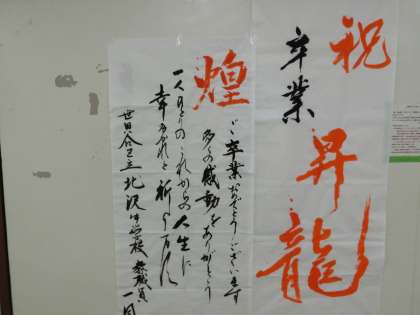 祝
卒業
昇龍
煌
ご卒業おめでとうございます
多くの感動をありがとう
一人ひとりのこれからの人生に
幸多かれと祈ります
世田谷区立北沢中学校 教職員一同